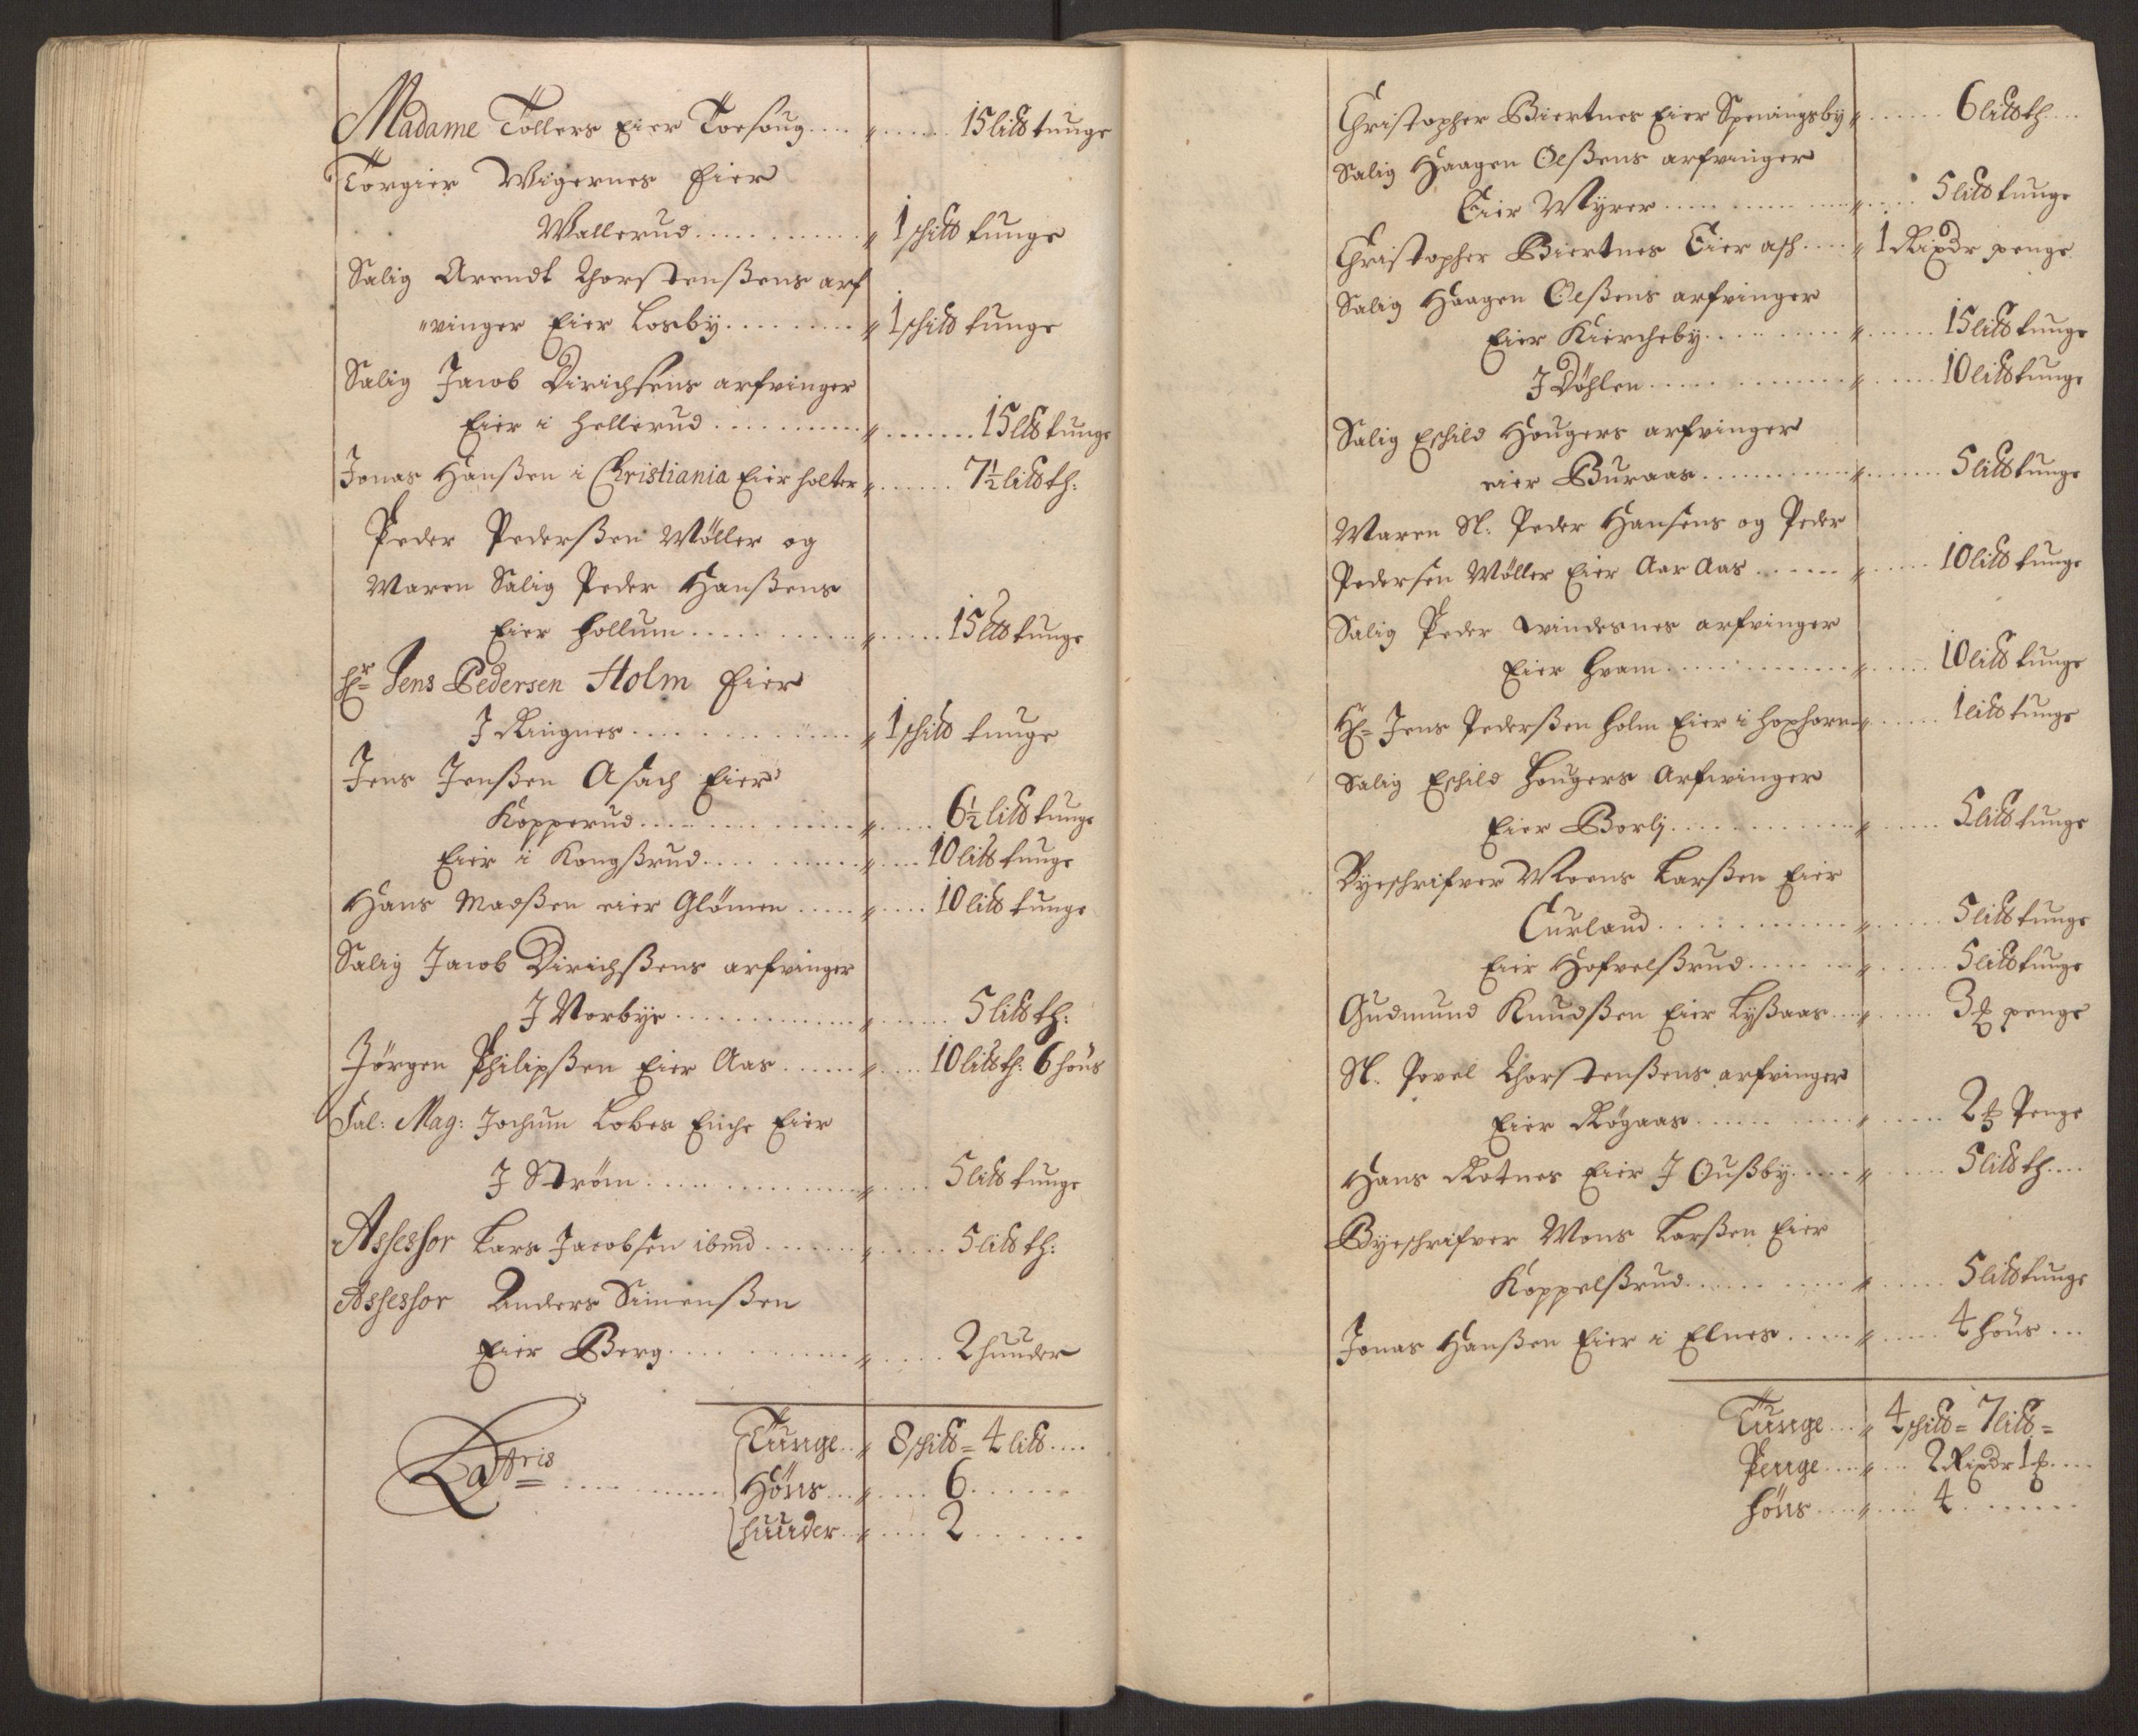 Madame Tollers Eier Torshoug .... " ...... 15 lis℔ tunge
Torgier Wigernes Eier
Wallerud ........... " 1 sch℔ tunge
Salig Arendt Thorstenßens arf
"vinger Eier Losby ......... " 1 sch℔ tunge
Salig Jacob Dirichsens arfvinger
Eier i Hellerud ........... " ....... 15 l℔ tunge
Jonas Hanßen i Christiania Eier Holter " ...... 7½ lis℔ th:
Peder Pederßen Møller og
Maren Salig Peder Hanßens
Eier Hollum ............ " ..... 15 l℔ tunge
Hr= Jens Pedersen Holm Eier
I Ringnes ............ " 1 sch℔ tunge
Jens Jenßen Asach Eier
Kopperud ............ " ..... 6½ lis℔ tunge
Eier i Kongßrud ......... " .... 10 lis℔ tunge
Hans Madßen eier Glømen ..... " .... 10 lis℔ tunge
Salig Jacob Dirichßens arfvinger
I Norbye ............ " ...... 5 lis℔ th:
Jørgen Philipßen Eier Aas ...... " .... 10 lis℔ th: 6 høns
Sal: Mag: Jochum Lobes Enche Eier
I Strøm ............ " ..... 5 lis℔ tunge
Assessor Lars Jacobsen ibmd ....... " ...... 5 lis℔ th:
Assessor Anders Simenßen
Eier Berg ........... " ..... 2 huuder
Latris = ........... Tunge .. " 8 sch℔ = 4 lis℔ ....
Høns ... " ..... 6 ......
huuder .. " ..... 2 .......
Christopher Biertnes Eier Speningsby " ...... 6 lis℔ th ....
Salig Haagen Olßens arfvinger
Eier Myrer ............ " .... 5 lis℔ tunge
Christopher Biertnes Eier ash .... " 1 Rixdr penge
Salig Haagen Olßens arfvinger
Eier Kiercheby .......... " ...... 15 lis℔ tunge
I Døhlen ............. " ..... 10 lis℔ tunge
Salig Eschild Hougers arfvinger
eier Buraas ............ " ...... 5 lis℔ tunge
Maren Sl. Peder Hansens og Peder
Pedersen Møller Eier Aar Aas ...... " ..... 10 lis℔ tunge
Salig Peder Qvindesnes arfvinger
Eier Hvam ............. " ..... 10 lis℔ tunge
Hr= Jens Pederßen Holm Eier i Hoxhorn " ...... 1 lis℔ tunge
Salig Eschild Hougers Arfvinger
Eier Borly ............. " ...... 5 lis℔ tunge
Byeschrifver Moens Larßen Eier
Curland ............ " ...... 5 lis℔ tunge
Eier Hofvelßrud ........ " ..... 5 lis℔ tunge
Gudmund Knudßen Eier Lyßaas .... " ..... 3 ß penge
Sl. Povel Thorstenßens arfvinger
Eier Røgaas ........... " ...... 2 ß Penge
Hans Rotnes Eier I Oußby ..... " ...... 5 lis℔ th ....
Byeschrifver Mons Larßen Eier
Koppelßrud ........... " ...... 5 lis℔ tunge
Jonas Hanßen Eier i Elnes ..... " ..... 4 høns ...
Tunge ... " 4 sch℔ = 7 lis℔ =
Penge .... " ... 2 Rixdr 1 ß ....
høns .... " .... 4 .......